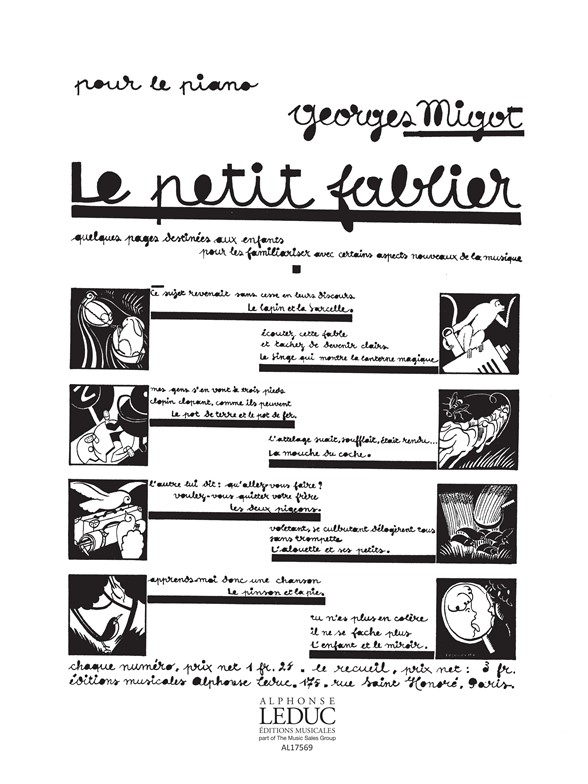 pour le piano
Georges Migot
Le petit fablier
quelques pages destinées aux enfants
pour les familiariser avec certains aspects nouveaux de la musique
Ce sujet revenait sans cesse en leurs discours
Le lapin et la Sarcelle.
écoutez cette fable
et tachez de devenir clairs
Le Singe qui montre la lanterne magique
mes gens s'en vont à trois pieds
clopin clopant, comme ils peuvent
Le pot de terre et le pot de fer.
l'attelage suait, soufflait, était rendu...
La mouche du coche.
l'autre lui dit : qu'allez-vous faire?
voulez-vous quitter votre frère
les deux pigeons.
voletant, se culbutant délogèrent tous
sans trompette
L'alouette et ses petits.
apprends-moi donc une chanson
Le pinson et la pie.
tu n'es plus en colère
il ne se fache plus
L'enfant et le miroir.
chaque numéro, prix net 1 fr. 25 . le recueil, prix net : 3 fr.
éditions musicales Alphonse Leduc . 175 . rue Saint Honoré . Paris.
ALPHONSE
LEDUC
ÉDITIONS MUSICALES
part of The Music Sales Group
AL17569